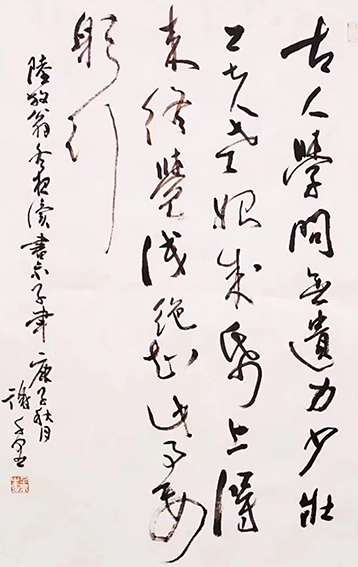 古人學問無遺力少壯
工夫老始成紙上得
来終覺淺絶知此事要
躬行
陸放翁冬夜讀書示子聿 庚子秋月
謝